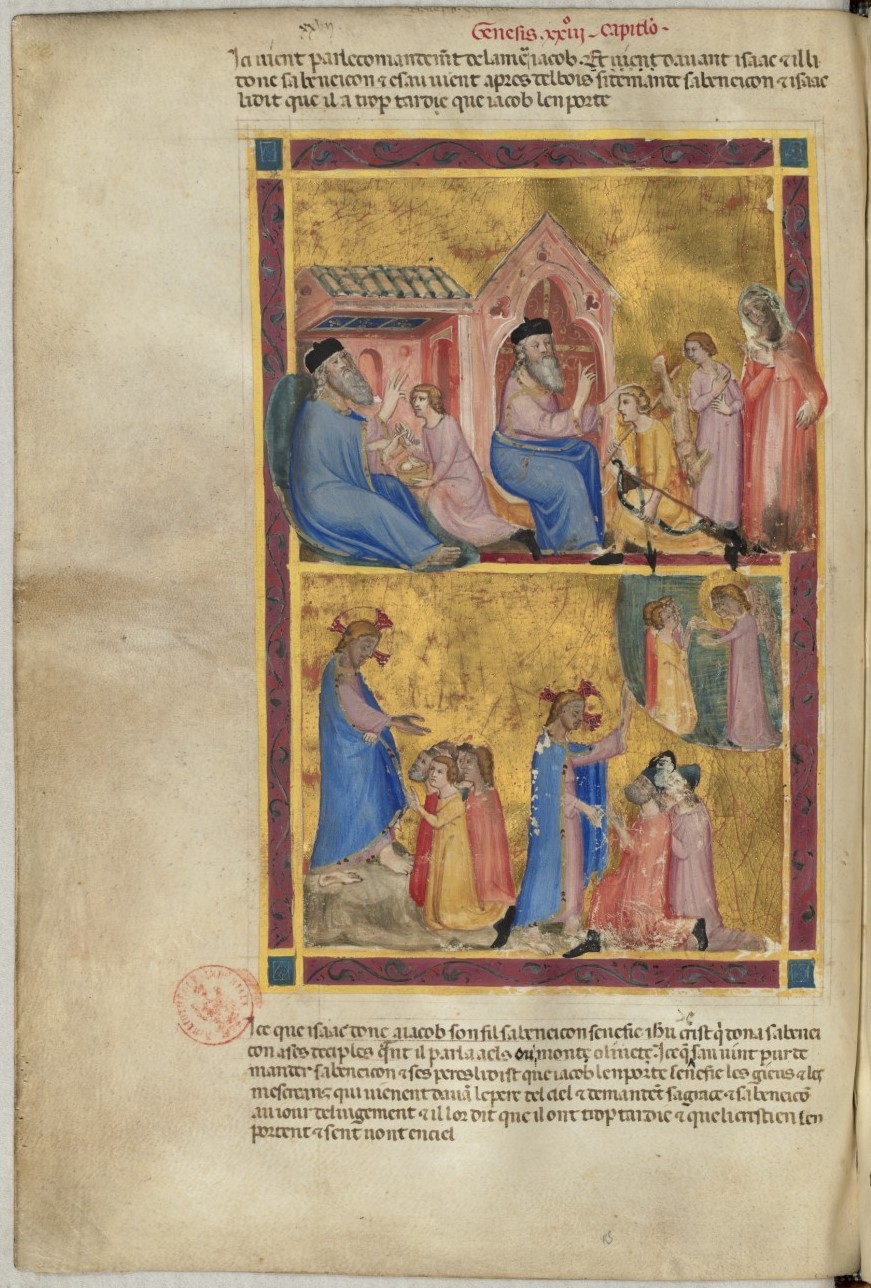 xxiij
Genesis .xxiii. capitlo.
Ici vient par le comandemt de la me iacob. Et vient davant isaac ⁊ il li
done sa beneicon ⁊ esau vient apres del bois si demande sa beneicon ⁊ isaac
li dit que il a trop tardie que iacob len porte
Ice que isaac done a iacob son fil sa beneicon senefie ihu crist q dona sa benei
con a ses deciples qnt il parla a els ou monte olivete. Ice q sau vint pur de
mander sa beneicon ⁊ ses peres li dist que iacob len porte senefie les gieus ⁊ les
mescreanz qui vienent dava le pere del ciel ⁊ demandet sa grace ⁊ sa beneico
au iour del iugement ⁊ il lor dit que il ont trop tardie ⁊ que li crestien len
portent ⁊ sent vont en ciel